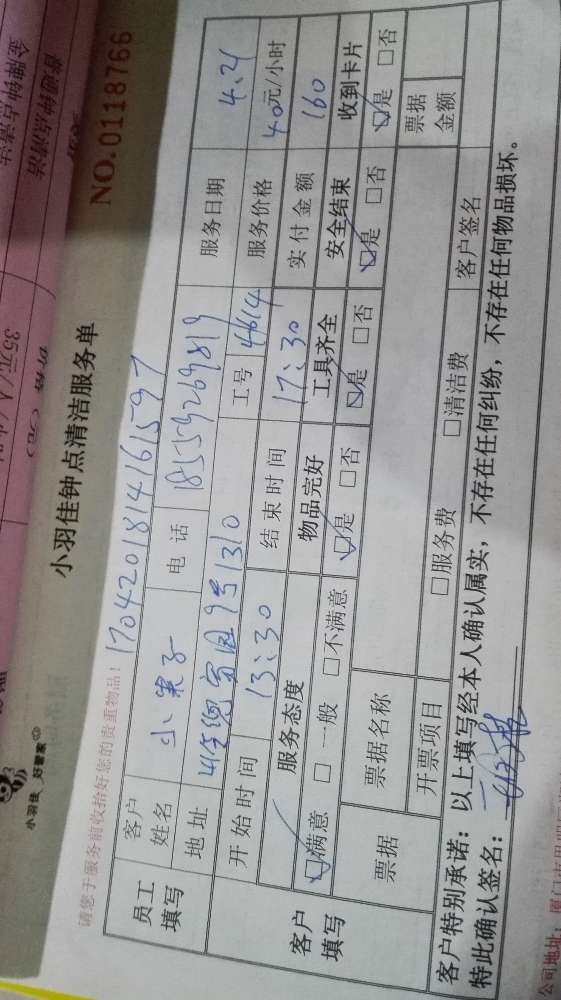 小羽佳 好管家
小羽佳钟点清洁服务单
NO.0118766
请您于服务前收拾好您的贵重物品!
1704201814161597
员工填写
客户姓名 小果子 电话 18559269819 服务日期 4.21
地址 9号1310 工号 4614 服务价格 40元/小时
开始时间 13:30 结束时间 17:30 实付金额 160
客户填写
服务态度 物品完好 工具齐全 安全结束 收到卡片
☑满意 □一般 □不满意 ☑是 □否 ☑是 □否 ☑是 □否 ☑是 □否
票据 票据名称 票据金额
开票项目 □服务费 □清洁费 客户签名
客户特别承诺:以上填写经本人确认属实,不存在任何纠纷,不存在任何物品损坏。
特此确认签名:
公司地址:厦门市